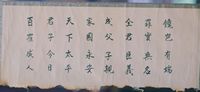 有端
實無名
全君臣義
成父子親
家國永安
天下太平
君子今日
百成人